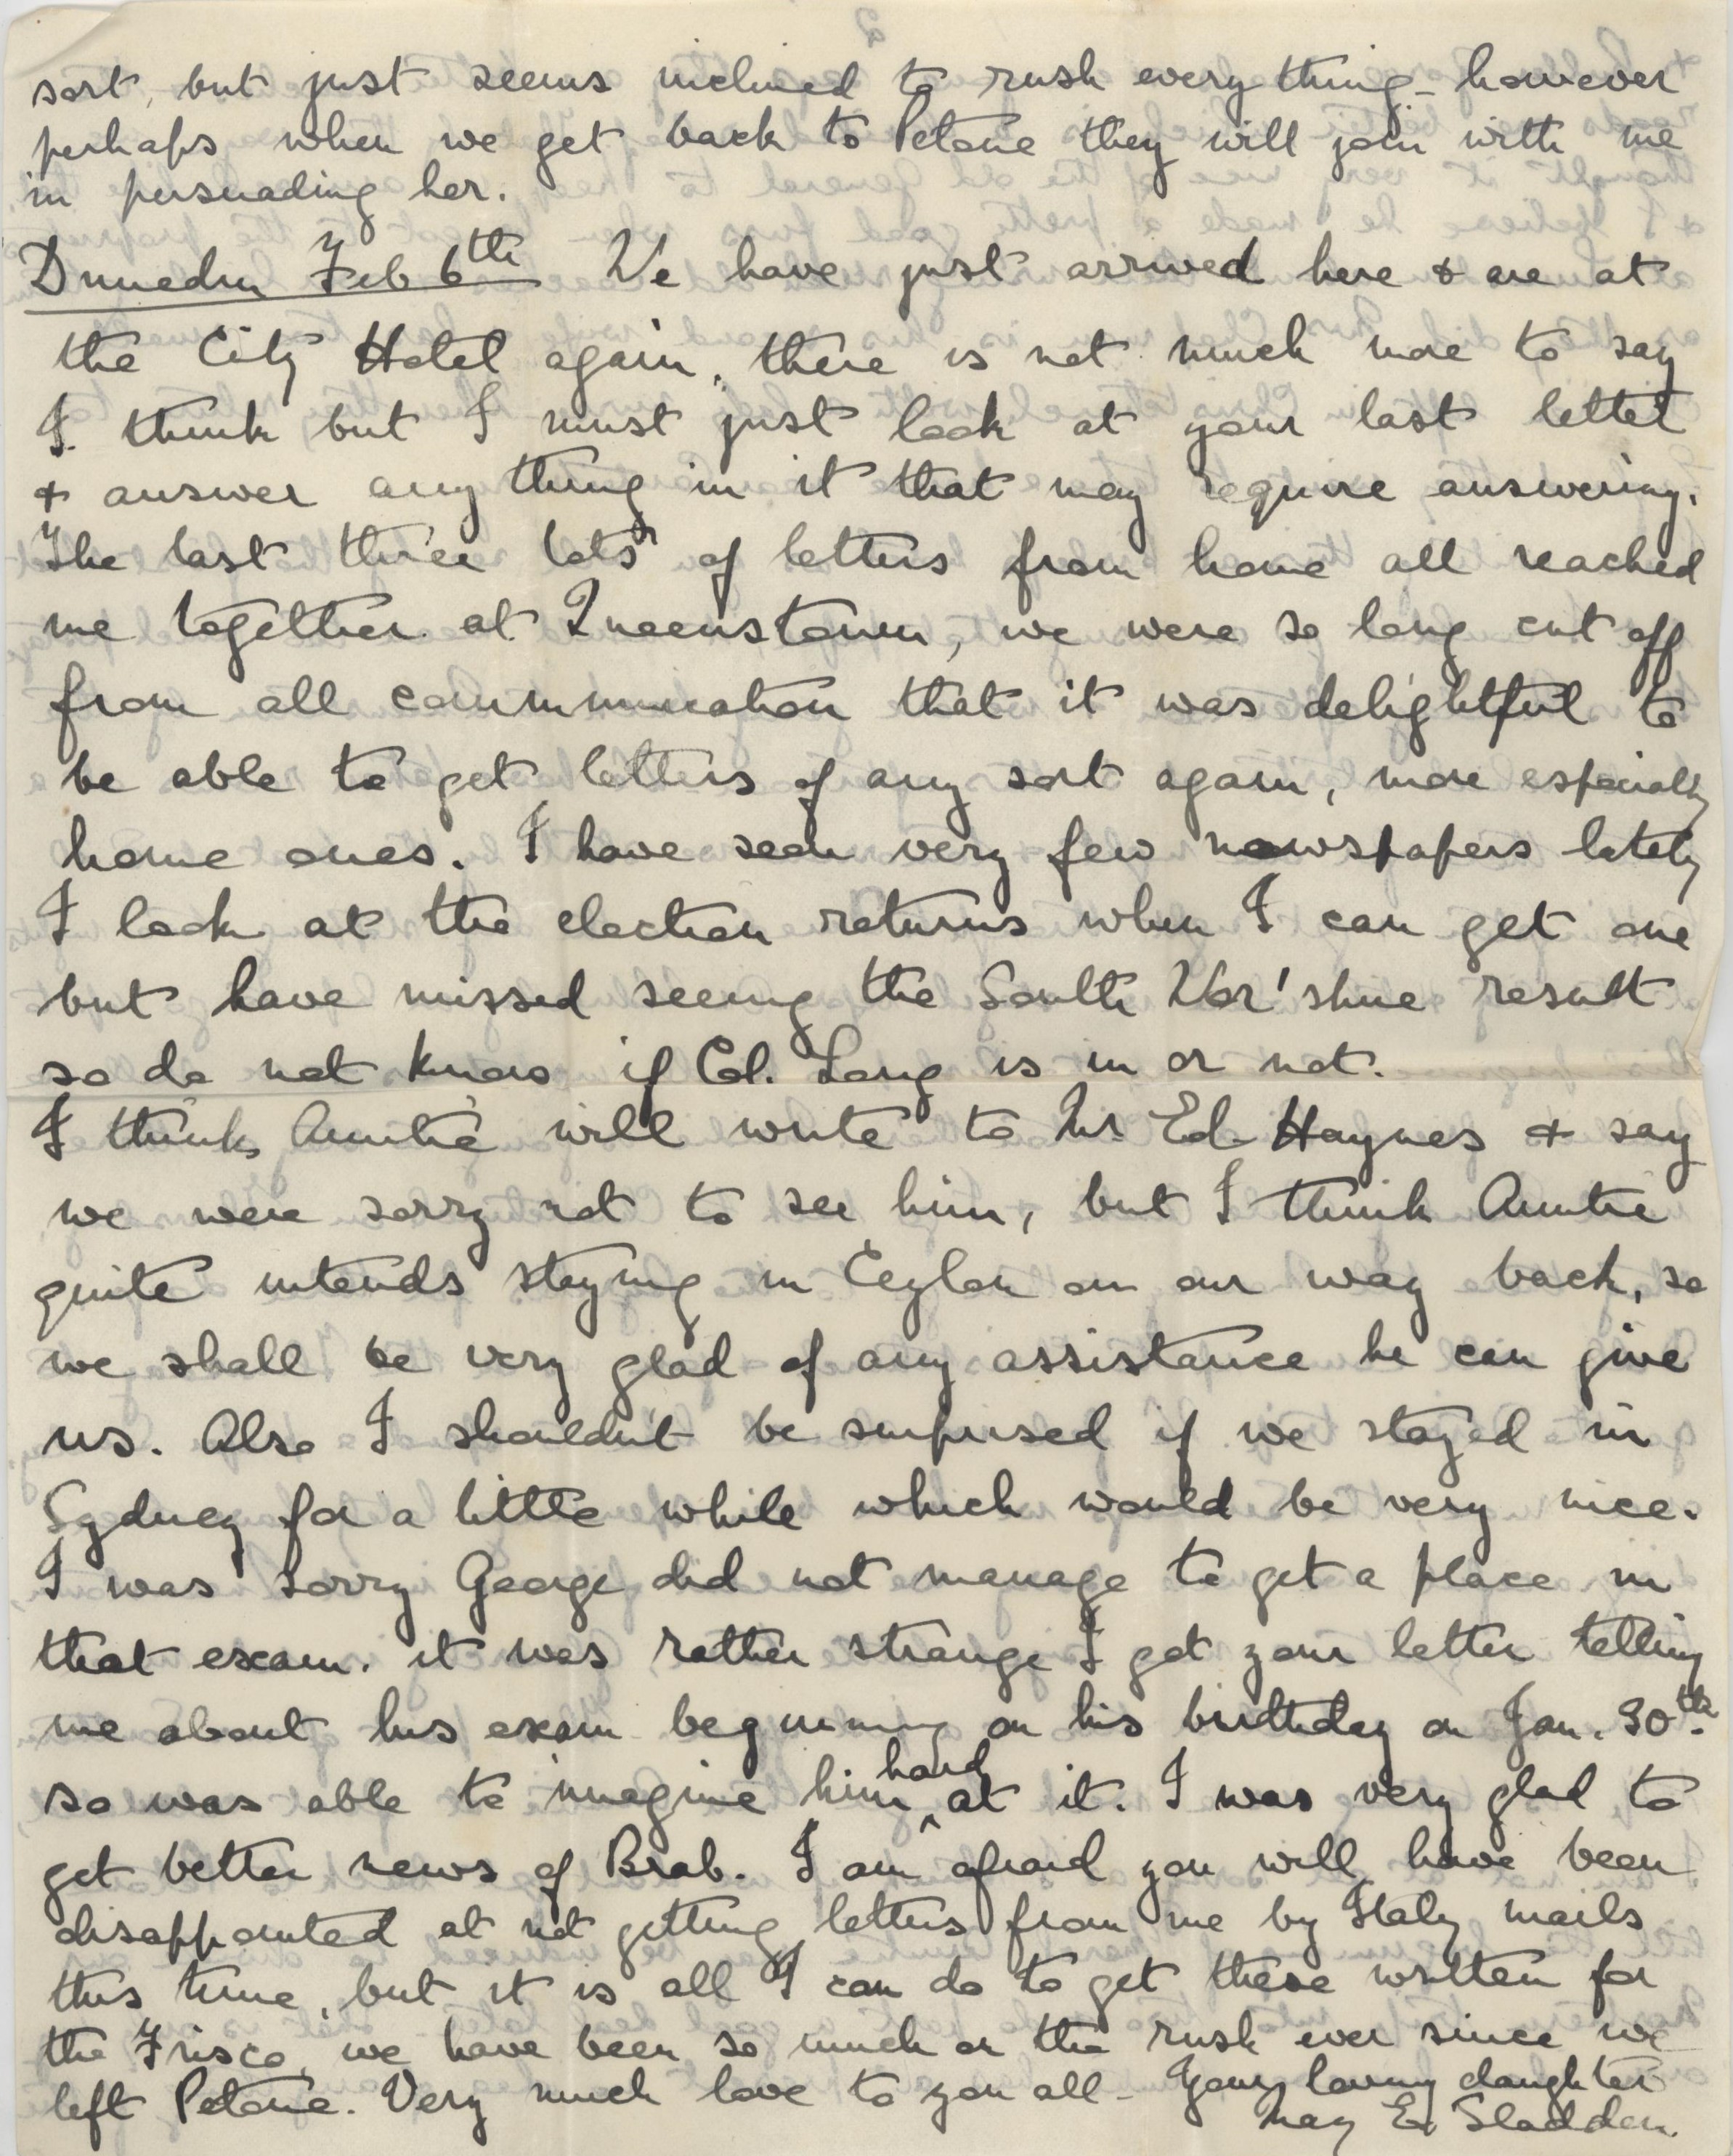 sort, but just seems inclined to rush every thing – however
perhaps when we get back to Petone they will join with me
in persuading her.
Dunedin Feb 6th We have just arrived here & are at
the City Hotel again, there is not much more to say
I think but I must just look at your last letter
& answer any thing in it that may require answering.
The last three lots of letters from home all reached
me together at Queenstown, we were so long cut off
from all communication that it was delightful to
be able to get letters of any sort again, more especially
home ones. I have seen very few newspapers lately
I look at the election returns when I can get one
but have missed seeing the South Wor'shire result
so do not know if Col. Long is in or not.
I think Auntie will write to Mr. Ed. Haynes & say
we were sorry not to see him, but I think Auntie
quite intends staying in Ceylon on our way back, so
we shall be very glad of any assistance he can give
us. Also I shouldn't be surprised if we stayed in
Sydney for a little while which would be very nice.
I was sorry George did not manage to get a place in
that exam. it was rather strange I got your letter telling
me about his exam beginning on his birthday on Jan. 30th.
so was able to imagine him hard at it. I was very glad to
get better news of Brab. I am afraid you will have been
disappointed at not getting letters from me by Italy mails
this time, but it is all I can do to get these written for
the Frisco, we have been so much on the rush ever since we
left Petone. Very much love to you all – Your loving daughter
May E. Sladden.